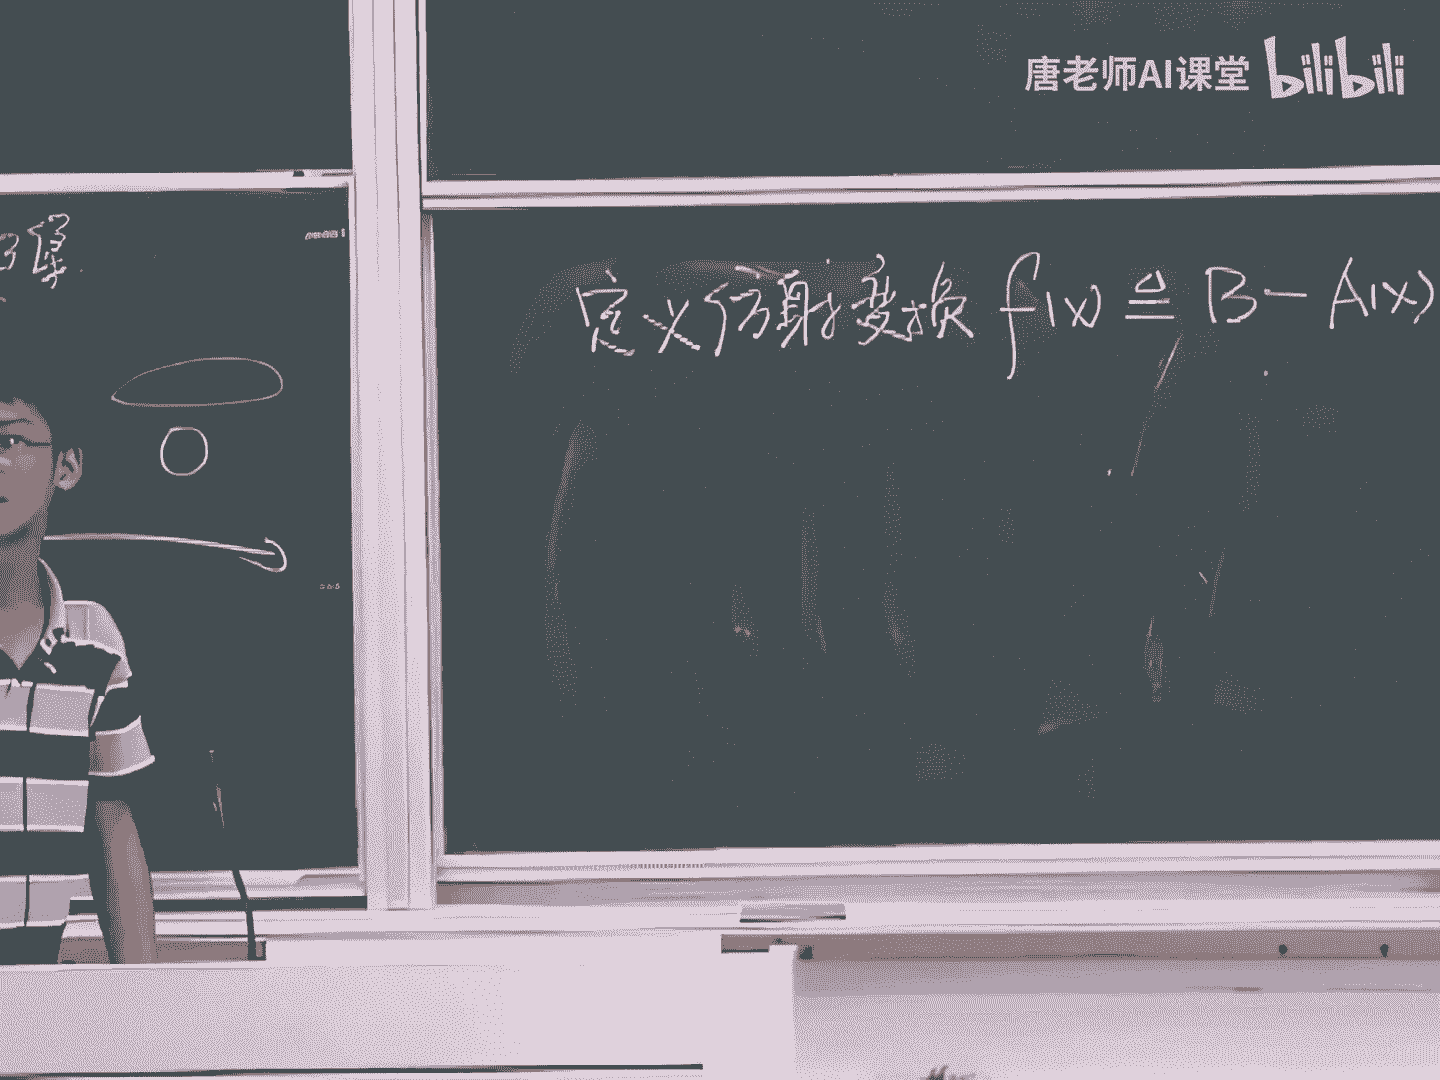 唐老师AI课堂 bilibili
定义仿射变换 f(x) ≜ B - A(x)